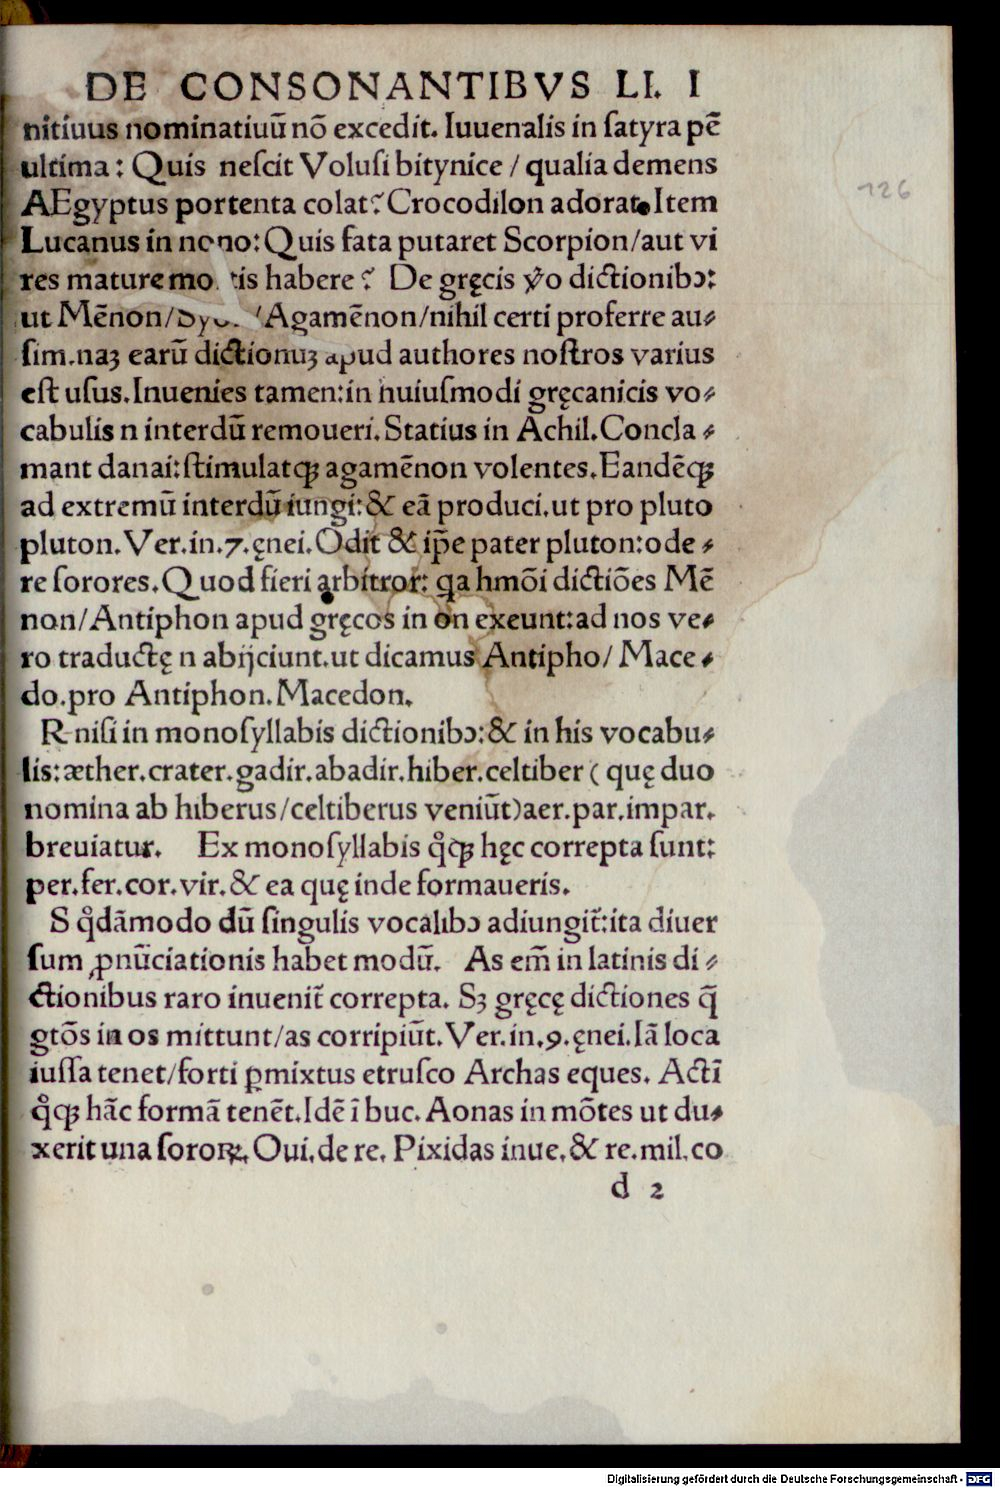 DE CONSONANTIBVS LI. I
126
nitiuus nominatiuū nō excedit. Iuuenalis in ſatyra pē
ultima: Quis neſcit Voluſi bitynice / qualia demens
AEgyptus portenta colat? Crocodilon adorat. Item
Lucanus in nono: Quis fata putaret Scorpion/aut vi
res mature habere? De gręcis ṽo dictionibꝰ:
ut Mēnon/ /Agamēnon/nihil certi proferre au⸗
ſim. naꝫ earū dictionuꝫ apud authores noſtros varius
eſt uſus. Inuenies tamen: in huiuſmodi gręcanicis vo⸗
cabulis n interdū remoueri. Statius in Achil. Concla⸗
mant danai: ſtimulatqꝫ agamēnon volentes. Eandēqꝫ
ad extremū interdū iungi: & eā produci. ut pro pluto
pluton. Ver. in .7. ęnei. Odit & ip̄e pater pluton: ode⸗
re ſorores. Quod fieri arbitror: qa hmōi dictiōes Mē
non/Antiphon apud gręcos in on exeunt: ad nos ve⸗
ro traductę n abijciunt. ut dicamus Antipho/ Mace⸗
do. pro Antiphon. Macedon.
R niſi in monoſyllabis dictionibꝰ: & in his vocabu⸗
lis: æther. crater. gadir. abadir. hiber. celtiber ( quę duo
nomina ab hiberus/celtiberus veniūt) aer. par. impar.
breuiatur. Ex monoſyllabis qͦqꝫ hęc correpta ſunt:
per. fer. cor. vir. & ea quę inde formaueris.
S qͦdāmodo dū ſingulis vocalibꝰ adiungit̄: ita diuer
ſum ꝓnūciationis habet modū. As em̄ in latinis di⸗
ctionibus raro inuenit̄ correpta. Sꝫ gręcę dictiones q̄
gtōs in os mittunt/as corripiūt. Ver. in .9. ęnei. Iā loca
iuſſa tenet/forti ꝑmixtus etruſco Archas eques. Actī
qͦqꝫ hāc formā tenēt. Idē ī buc. Aonas in mōtes ut du⸗
xerit una ſororꝝ. Oui. de re. Pixidas inue. & re. mil. co
d 2
Digitalisierung gefördert durch die Deutsche Forschungsgemeinschaft - DFG